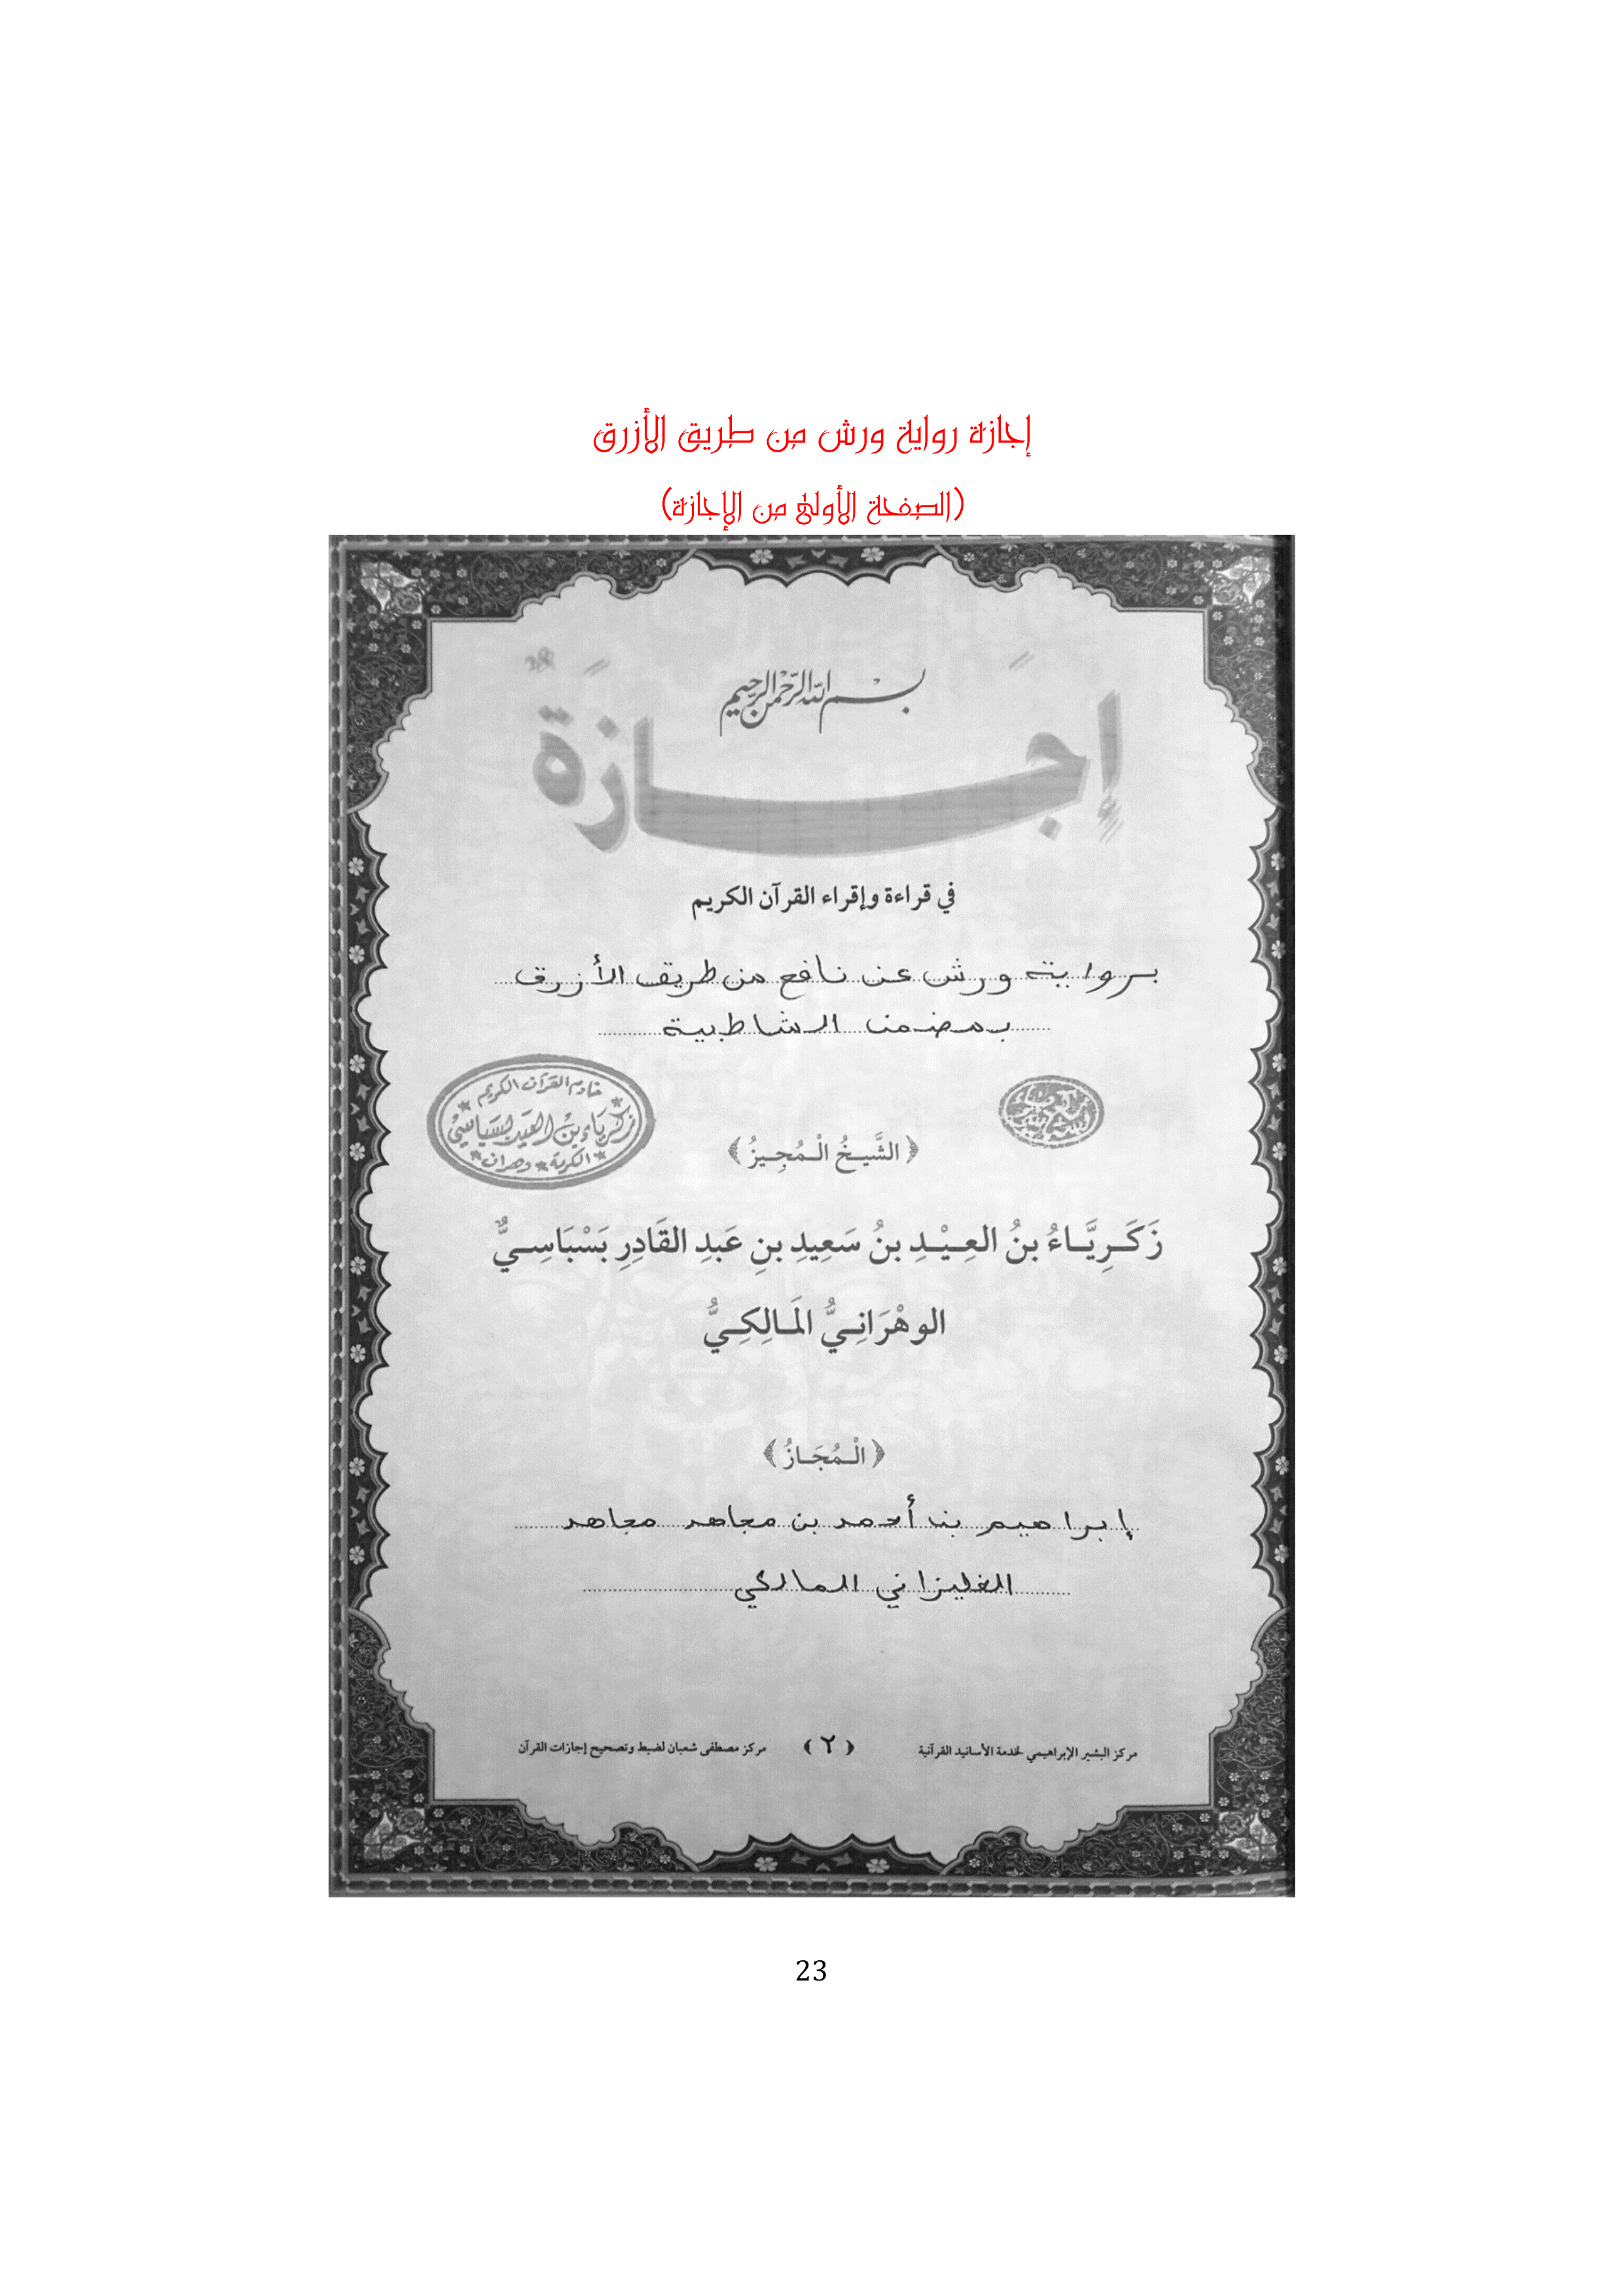 إجازة رواية ورش من طريق الأزرق
(الصفحة الأولى من الإجازة)
بسم الله الرحمن الرحيم
إِجَازَةٌ
في قراءة وإقراء القرآن الكريم
برواية ورش عن نافع من طريق الأزرق
بمضمن الشاطبية
خادم القرآن الكريم
زكرياء بن العيد بسباسي
الكرمة وهران
﴿الشَّيخُ الْمُجِيزُ﴾
زَكَرِيَّاءُ بنُ العِيْدِ بنُ سَعِيدِ بنِ عَبدِ القَادِرِ بَسْبَاسِيُّ
الوهْرَانِيُّ المَالِكِيُّ
﴿الْمُجَازُ﴾
إبراهيم بن أحمد بن مجاهد مجاهد
الغليزاني المالكي
مركز البشير الإبراهيمي لخدمة الأسانيد القرآنية ﴿٢﴾ مركز مصطفى شعبان لضبط وتصحيح إجازات القرآن
23